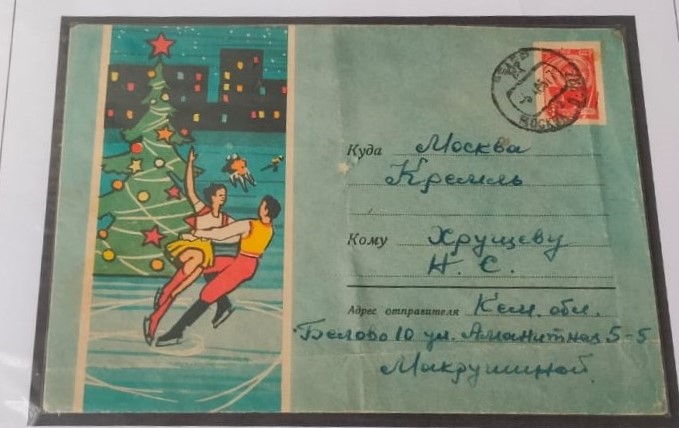 МОСКВА
Куда Москва
Кремль
Кому Хрущеву
Н. С.
Адрес отправителя Кем. обл.
Белово 10 ул. Аманитная 5-5
Макрушиной